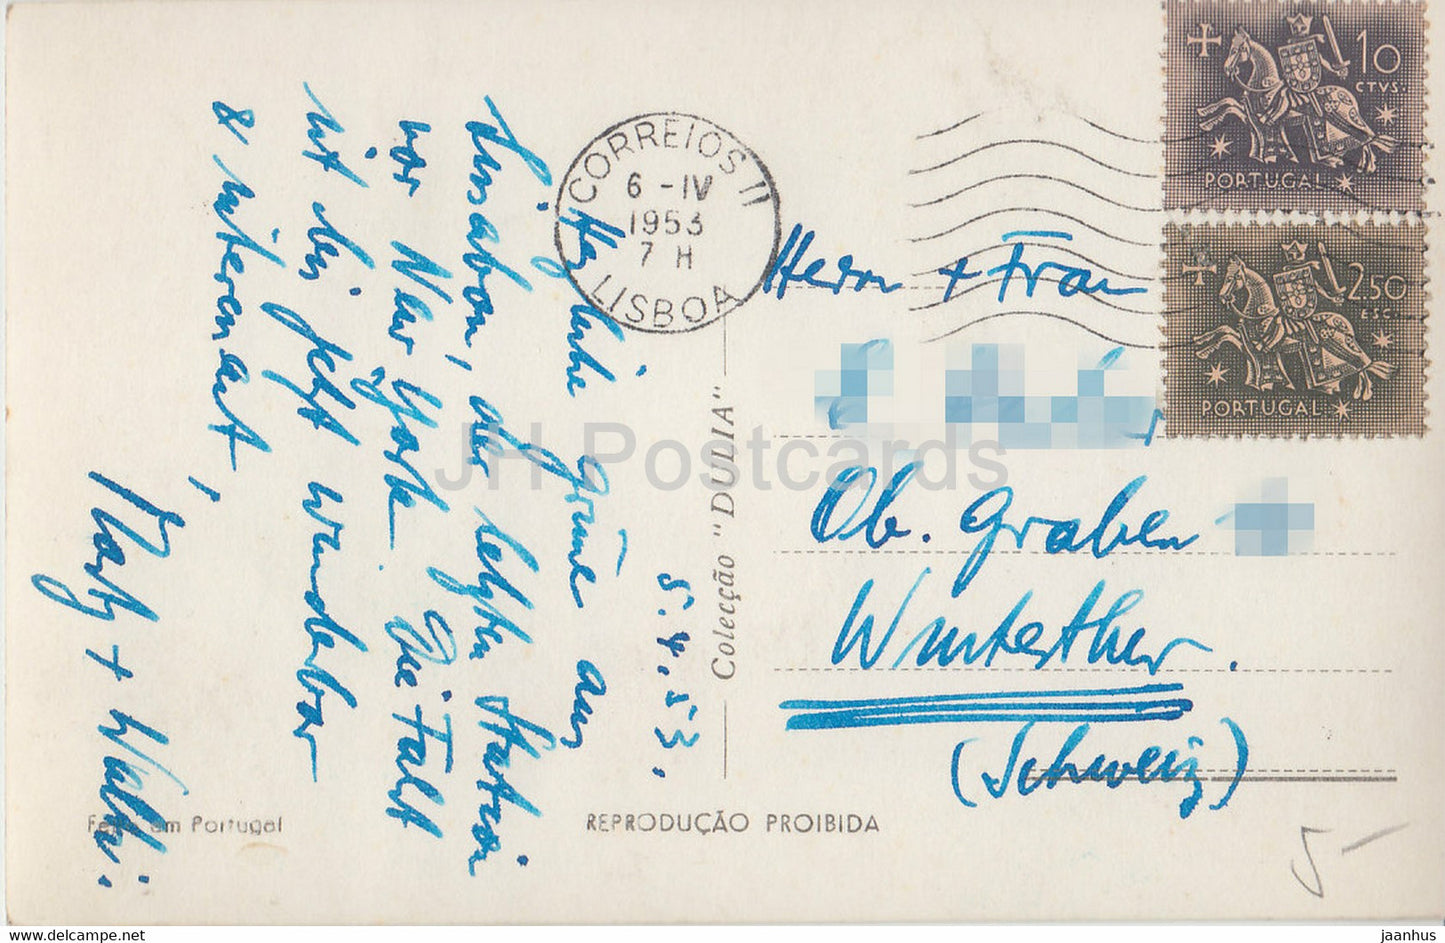 5.4.53.
Herzliche Grüsse aus
Lissabon, der letzten Station
vor New York. Die Fahrt
ist bis jetzt wunderbar
& interessant,
+ Walti.
CORREIOS II
6 - IV
1953
7 H
LISBOA
10
CTVS.
PORTUGAL
2.50
ESC.
PORTUGAL
Herrn + Frau
Ob. Graben
Winterthur.
(Schweiz)
Colecção "DULIA"
JH Postcards
Feito em Portugal
REPRODUÇÃO PROIBIDA
5 -
www.delcampe.net
jaanhus